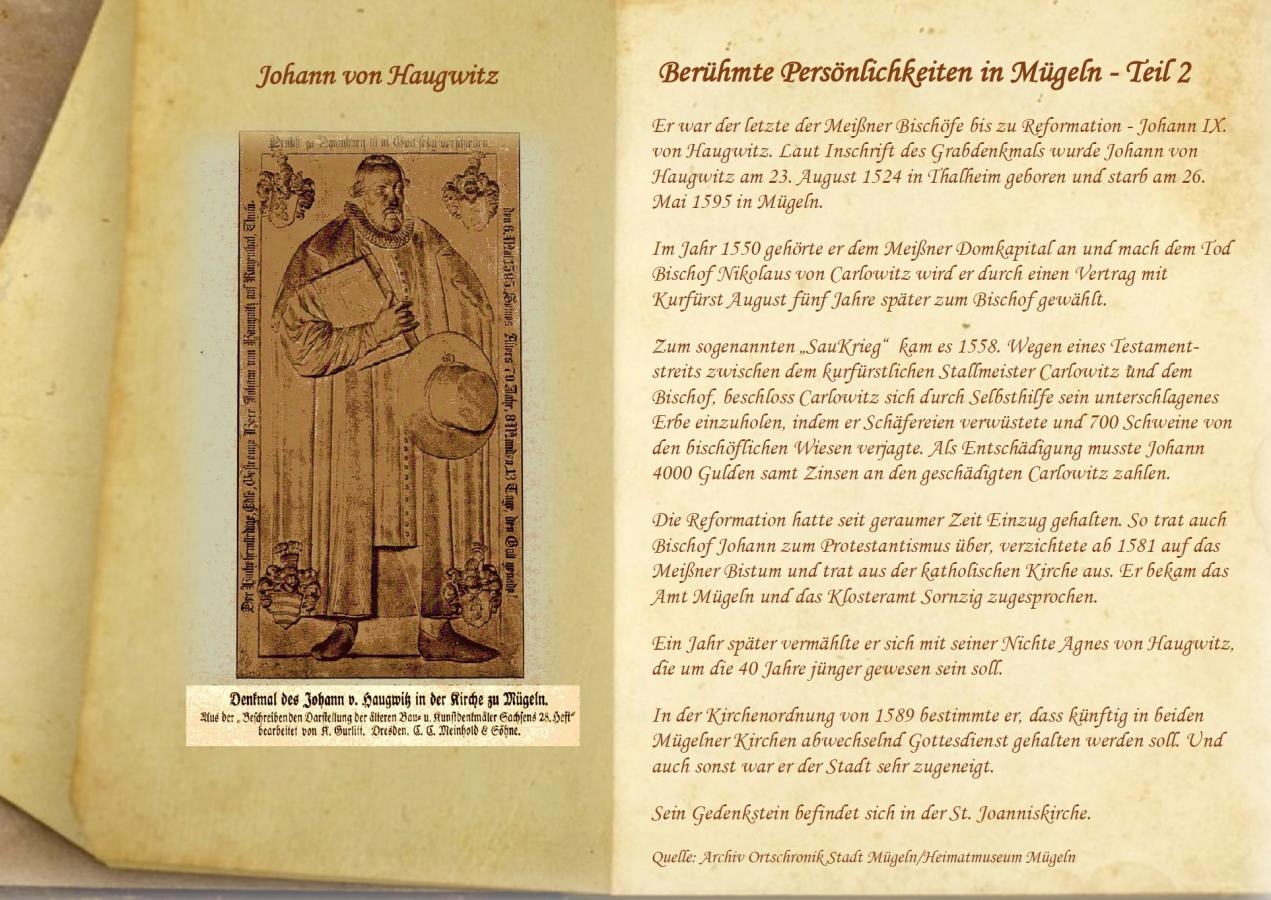 Johann von Haugwitz
den 6. Mai 1595. Seines Alters 70 Jahr, 8 Monden, 13 Tage. den Gott genade!
Denkmal des Johann v. Haugwitz in der Kirche zu Mügeln.
Aus der „Beschreibenden Darstellung der älteren Bau- u. Kunstdenkmäler Sachsens 28. Heft“
bearbeitet von K. Gurlitt. Dresden. C. C. Meinhold & Söhne.
Berühmte Persönlichkeiten in Mügeln - Teil 2
Er war der letzte der Meißner Bischöfe bis zu Reformation - Johann IX.
von Haugwitz. Laut Inschrift des Grabdenkmals wurde Johann von
Haugwitz am 23. August 1524 in Thalheim geboren und starb am 26.
Mai 1595 in Mügeln.
Im Jahr 1550 gehörte er dem Meißner Domkapital an und mach dem Tod
Bischof Nikolaus von Carlowitz wird er durch einen Vertrag mit
Kurfürst August fünf Jahre später zum Bischof gewählt.
Zum sogenannten „SauKrieg“ kam es 1558. Wegen eines Testament-
streits zwischen dem kurfürstlichen Stallmeister Carlowitz und dem
Bischof, beschloss Carlowitz sich durch Selbsthilfe sein unterschlagenes
Erbe einzuholen, indem er Schäfereien verwüstete und 700 Schweine von
den bischöflichen Wiesen verjagte. Als Entschädigung musste Johann
4000 Gulden samt Zinsen an den geschädigten Carlowitz zahlen.
Die Reformation hatte seit geraumer Zeit Einzug gehalten. So trat auch
Bischof Johann zum Protestantismus über, verzichtete ab 1581 auf das
Meißner Bistum und trat aus der katholischen Kirche aus. Er bekam das
Amt Mügeln und das Klosteramt Sornzig zugesprochen.
Ein Jahr später vermählte er sich mit seiner Nichte Agnes von Haugwitz,
die um die 40 Jahre jünger gewesen sein soll.
In der Kirchenordnung von 1589 bestimmte er, dass künftig in beiden
Mügelner Kirchen abwechselnd Gottesdienst gehalten werden soll. Und
auch sonst war er der Stadt sehr zugeneigt.
Sein Gedenkstein befindet sich in der St. Joanniskirche.
Quelle: Archiv Ortschronik Stadt Mügeln/Heimatmuseum Mügeln